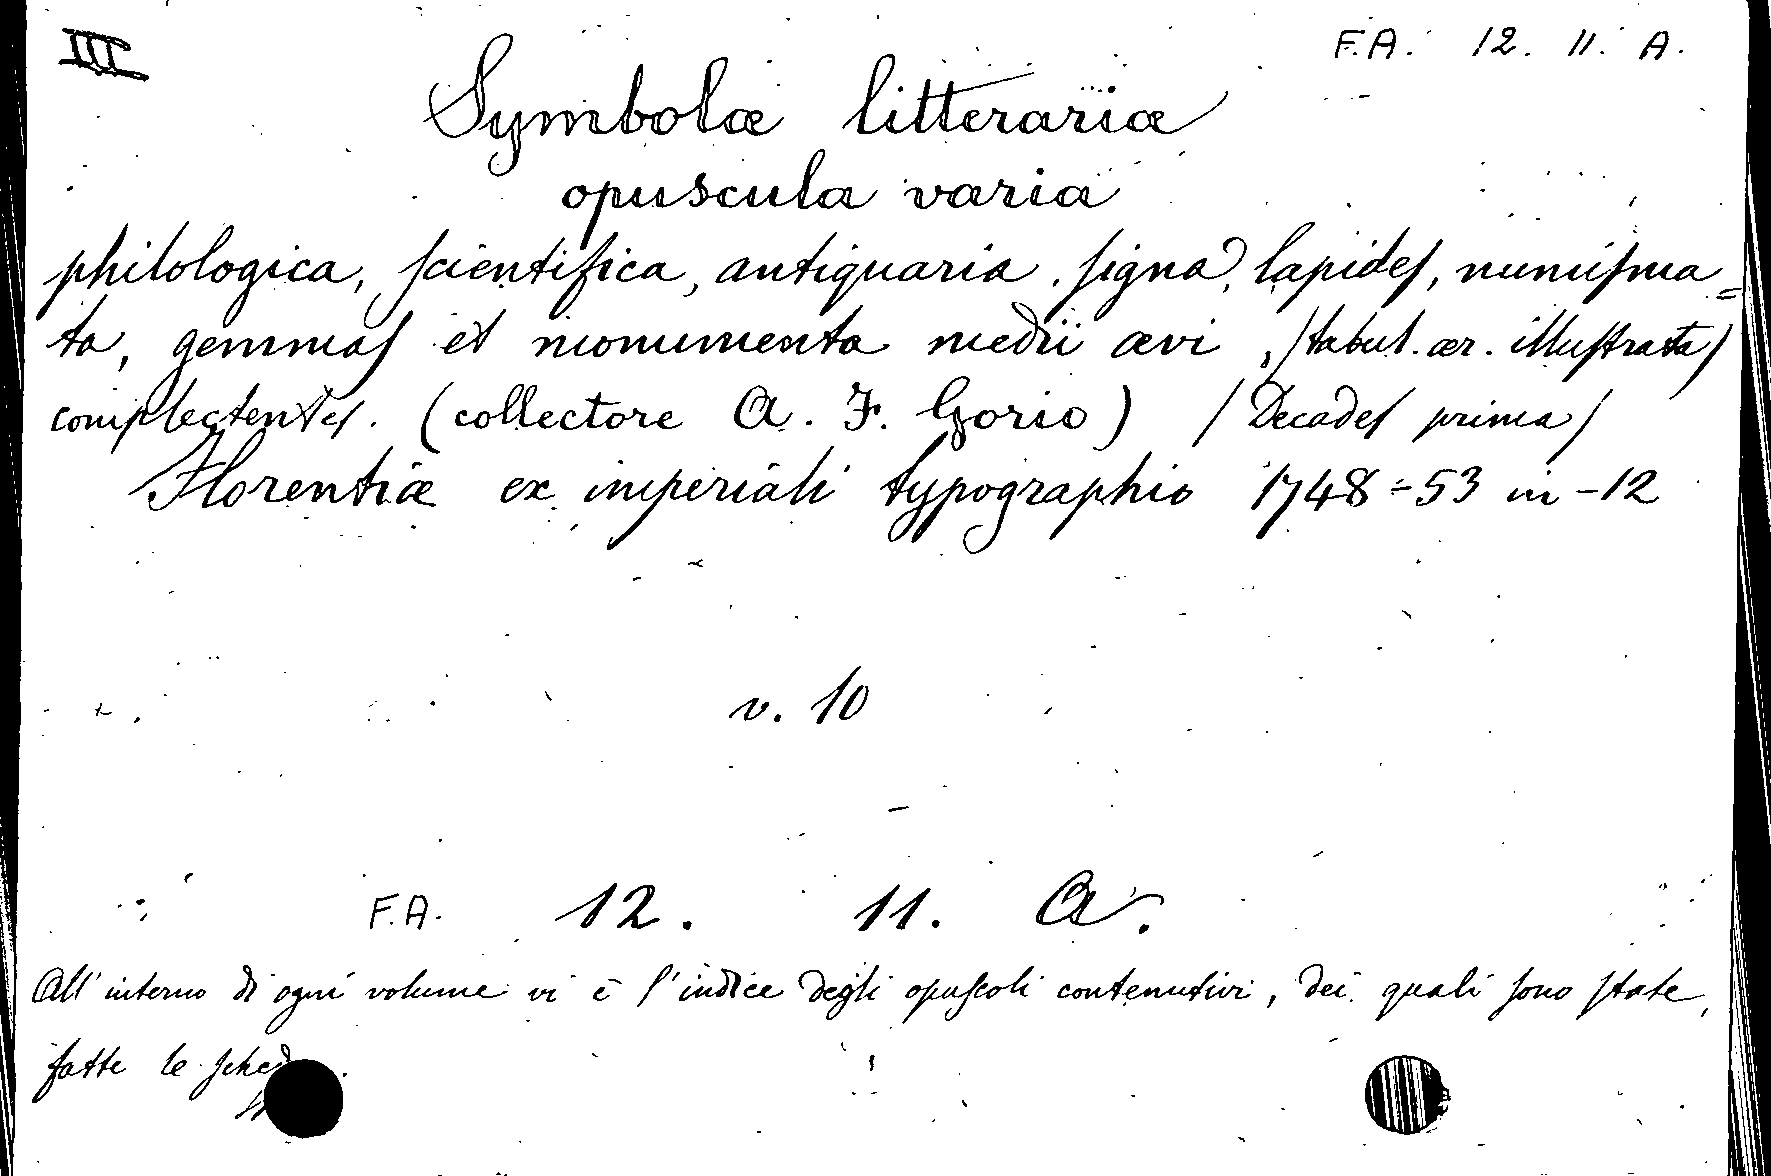 III
F.A. 12. 11. A.
Symbolæ litterariæ
opuscula varia
philologica, scientifica, antiquaria, signa, lapides, numisma=
ta, gemmas et monumenta medii ævi, /tabul. ær. illustrata/
complectentes. (collectore A. F. Gorio) /Decades prima/
Florentiæ ex imperiali typographio 1748÷53 in-12
v. 10
F.A. 12. 11. A.
All'interno di ogni volume vi è l'indice degli opuscoli contenutivi, dei quali sono state,
fatte le